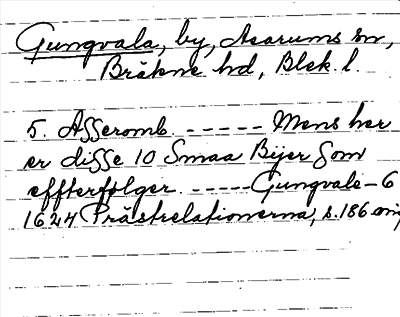 Gungvala, by, Asarums sn,
Bräkne hd, Blek. l.
5. Asseromb. ----- Mens her
er disse 10 Smaa Byer som
effterfølger. ----- Gungvale-6
1624 Prästrelationerna, s. 186